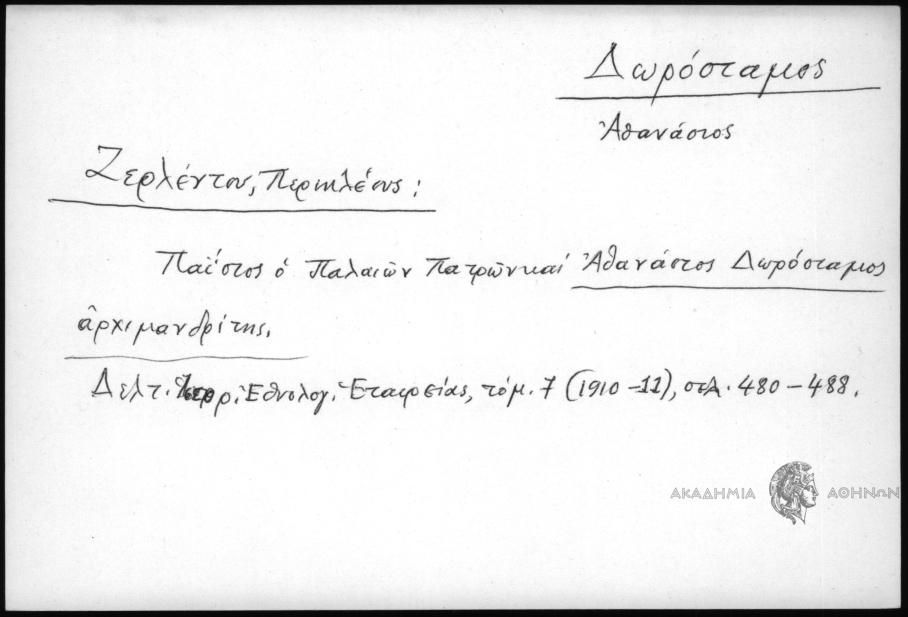 Δωρόσταμος
Ἀθανάσιος
Ζερλέντου, Περικλέους:
Παΐσιος ὁ Παλαιῶν Πατρῶν καί Ἀθανάσιος Δωρόσταμος
ἀρχιμανδρίτης.
Δελτ. Ἐθνολογ. Ἑταιρείας, τόμ. 7 (1910-11), σελ. 480-488.
ΑΚΑΔΗΜΙΑ ΑΘΗΝΩΝ